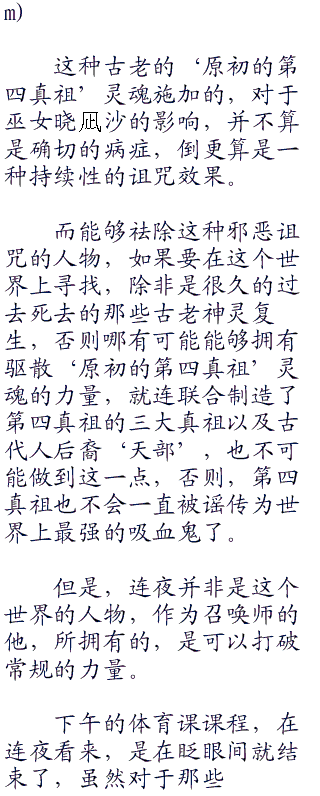 m)
这种古老的‘原初的第
四真祖’灵魂施加的，对于
巫女晓凪沙的影响，并不算
是确切的病症，倒更算是一
种持续性的诅咒效果。
而能够祛除这种邪恶诅
咒的人物，如果要在这个世
界上寻找，除非是很久的过
去死去的那些古老神灵复
生，否则哪有可能能够拥有
驱散‘原初的第四真祖’灵
魂的力量，就连联合制造了
第四真祖的三大真祖以及古
代人后裔‘天部’，也不可
能做到这一点，否则，第四
真祖也不会一直被谣传为世
界上最强的吸血鬼了。
但是，连夜并非是这个
世界的人物，作为召唤师的
他，所拥有的，是可以打破
常规的力量。
下午的体育课课程，在
连夜看来，是在眨眼间就结
束了，虽然对于那些